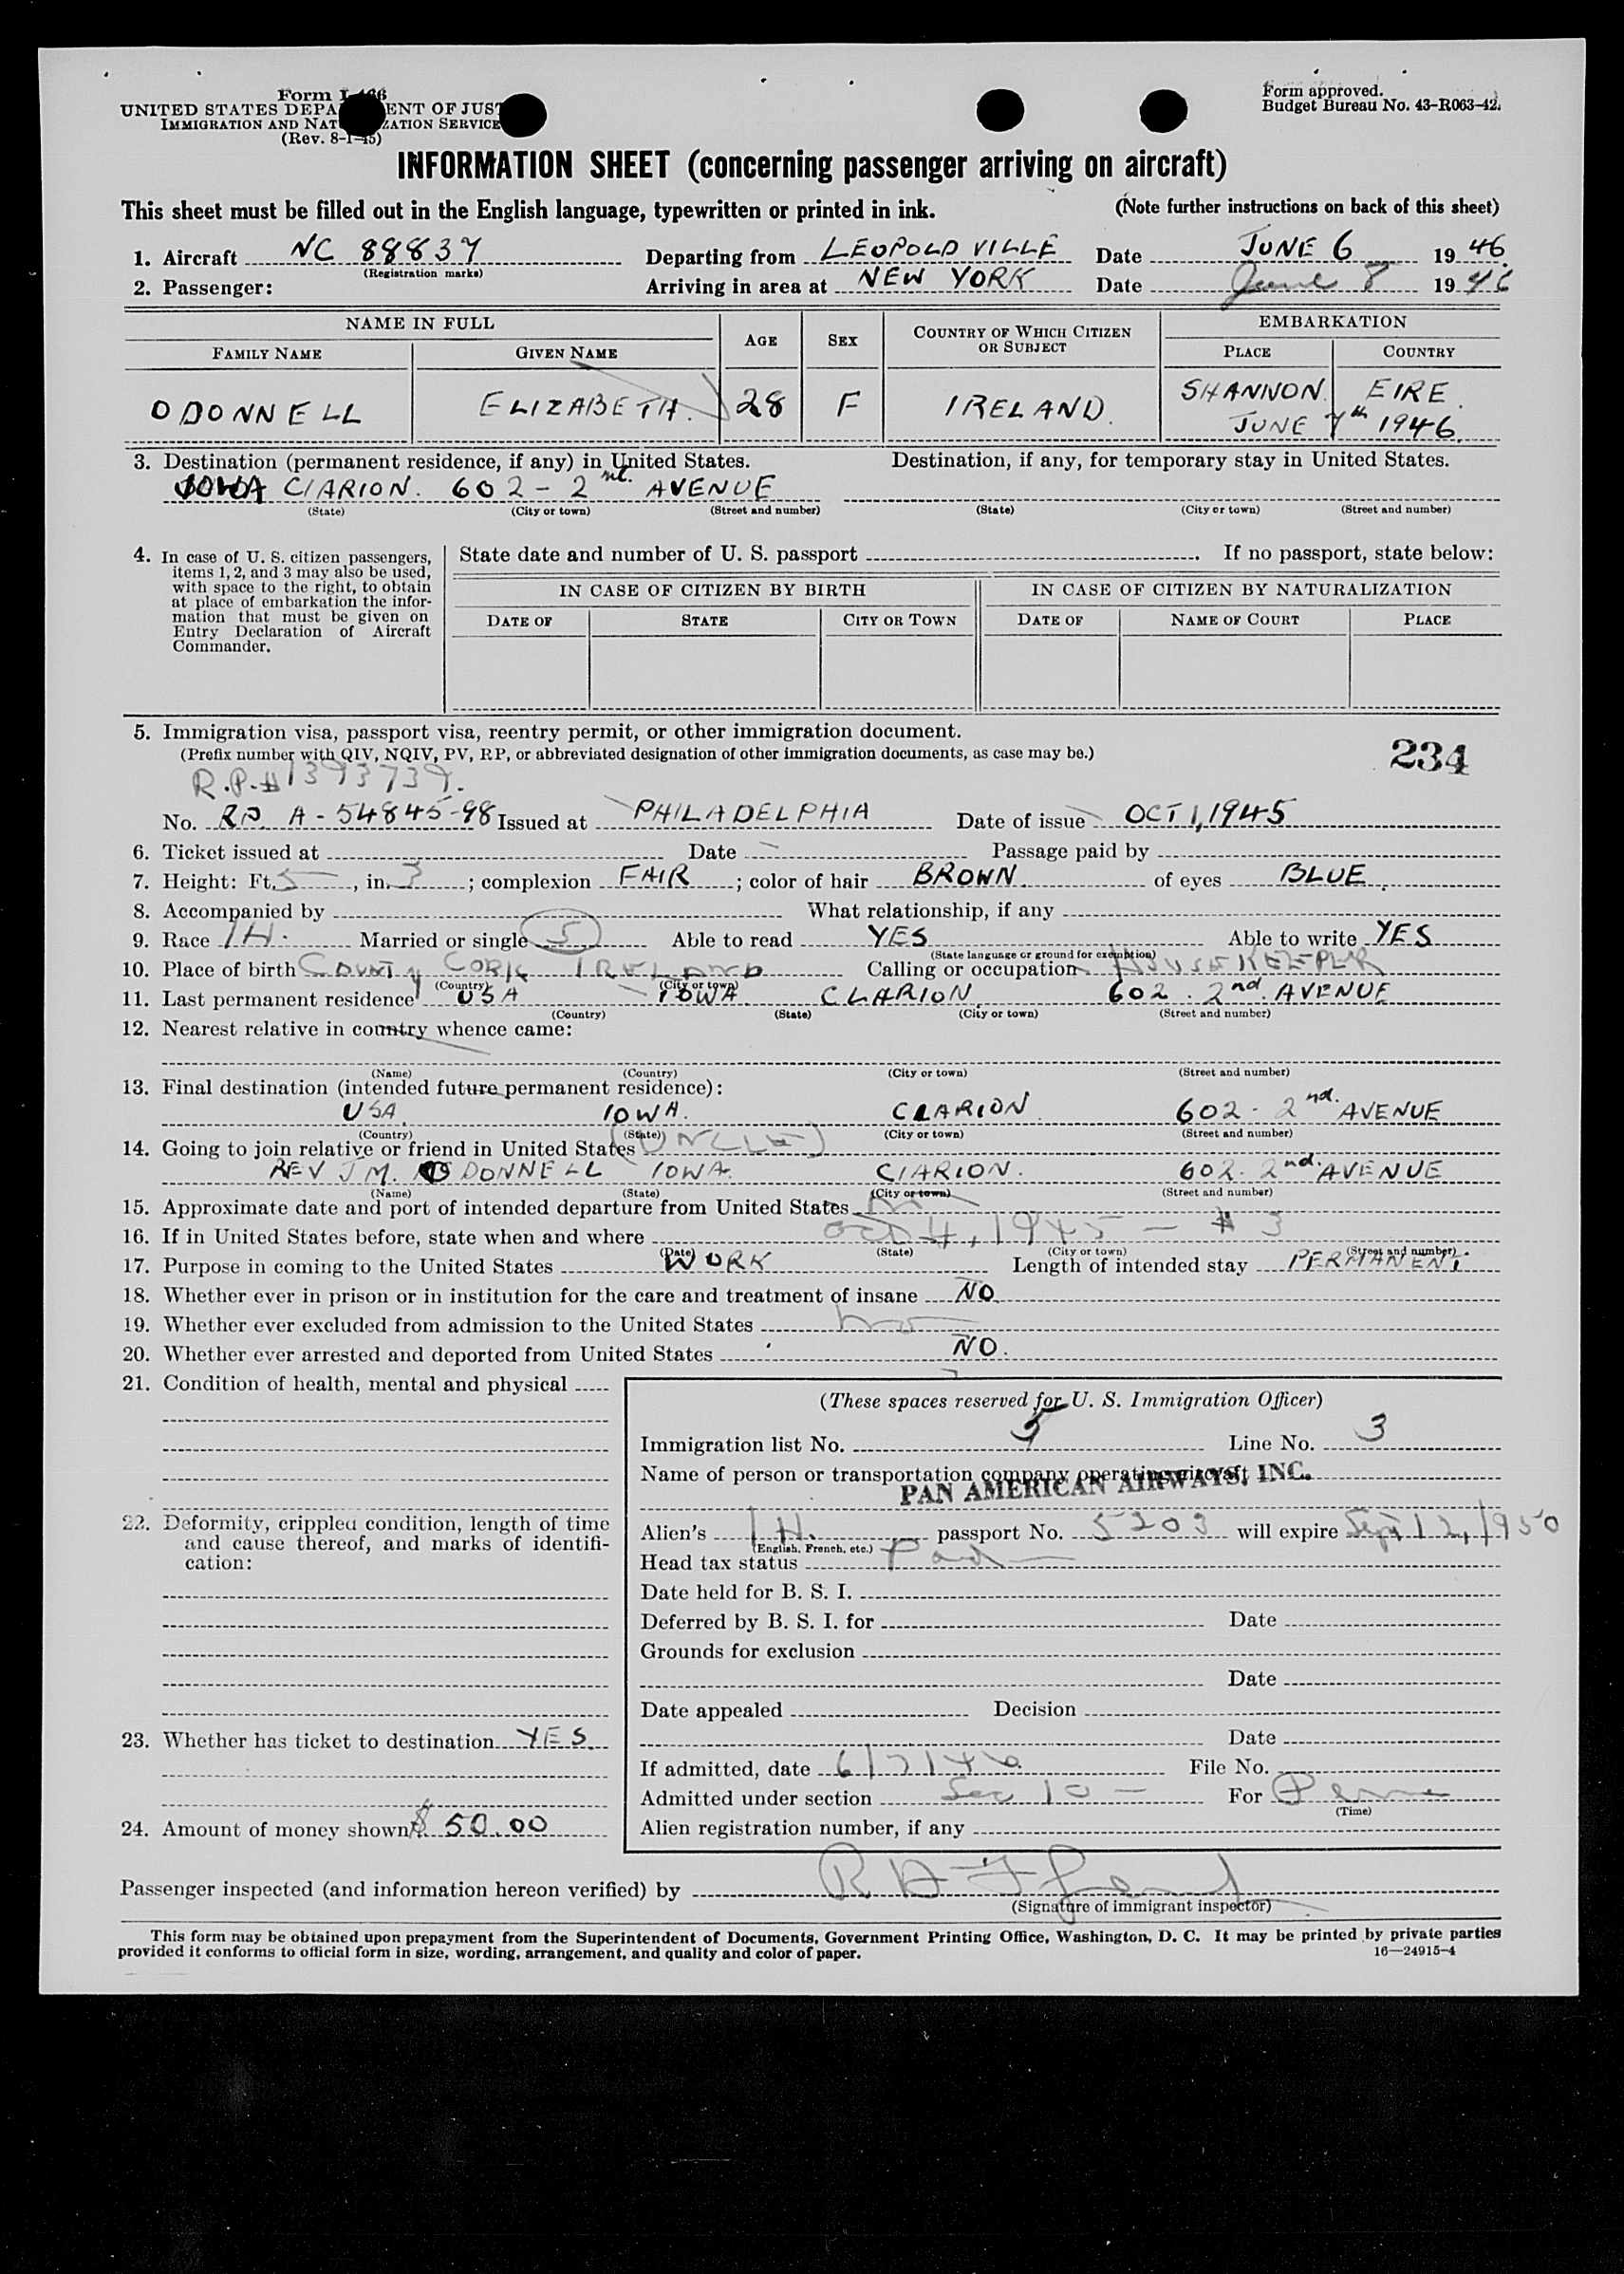 Form I-466
UNITED STATES DEPARTMENT OF JUSTICE
IMMIGRATION AND NATURALIZATION SERVICE
(Rev. 8-1-45)
Form approved.
Budget Bureau No. 43-R063-42.
INFORMATION SHEET (concerning passenger arriving on aircraft)
This sheet must be filled out in the English language, typewritten or printed in ink. (Note further instructions on back of this sheet)
1. Aircraft NC 88837 Departing from LEOPOLDVILLE Date JUNE 6 1946
(Registration marks)
2. Passenger: Arriving in area at NEW YORK Date June 8 1946
NAME IN FULL AGE SEX COUNTRY OF WHICH CITIZEN OR SUBJECT EMBARKATION
FAMILY NAME GIVEN NAME PLACE COUNTRY
O DONNELL ELIZABETH. 28 F IRELAND. SHANNON. EIRE.
JUNE 7th 1946.
3. Destination (permanent residence, if any) in United States. Destination, if any, for temporary stay in United States.
IOWA CLARION. 602 - 2nd. AVENUE
(State) (City or town) (Street and number) (State) (City or town) (Street and number)
4. In case of U. S. citizen passengers, items 1, 2, and 3 may also be used, with space to the right, to obtain at place of embarkation the information that must be given on Entry Declaration of Aircraft Commander.
State date and number of U. S. passport . If no passport, state below:
IN CASE OF CITIZEN BY BIRTH IN CASE OF CITIZEN BY NATURALIZATION
DATE OF STATE CITY OR TOWN DATE OF NAME OF COURT PLACE
5. Immigration visa, passport visa, reentry permit, or other immigration document.
(Prefix number with QIV, NQIV, PV, RP, or abbreviated designation of other immigration documents, as case may be.)
234
R.P.# 1393739.
No. R.P. A-54845-98 Issued at PHILADELPHIA Date of issue OCT 1, 1945
6. Ticket issued at Date Passage paid by
7. Height: Ft. 5, in. 3; complexion FAIR; color of hair BROWN. of eyes BLUE.
8. Accompanied by What relationship, if any
9. Race IH. Married or single S Able to read YES Able to write YES
(State language or ground for exemption)
10. Place of birth County CORK IRELAND Calling or occupation HOUSEKEEPER
(Country) (City or town)
11. Last permanent residence USA IOWA. CLARION. 602. 2nd. AVENUE
(Country) (State) (City or town) (Street and number)
12. Nearest relative in country whence came:
(Name) (Country) (City or town) (Street and number)
13. Final destination (intended future permanent residence):
USA. IOWA. CLARION. 602 - 2nd. AVENUE
(Country) (State) (City or town) (Street and number)
14. Going to join relative or friend in United States (UNCLE)
REV J M. O DONNELL IOWA. CLARION. 602. 2nd. AVENUE
(Name) (State) (City or town) (Street and number)
15. Approximate date and port of intended departure from United States no
16. If in United States before, state when and where Oct 4, 1945 - # 3
(Date) (State) (City or town) (Street and number)
17. Purpose in coming to the United States WORK Length of intended stay PERMANENT.
18. Whether ever in prison or in institution for the care and treatment of insane NO.
19. Whether ever excluded from admission to the United States no
20. Whether ever arrested and deported from United States NO.
21. Condition of health, mental and physical
22. Deformity, crippled condition, length of time and cause thereof, and marks of identification:
23. Whether has ticket to destination YES.
24. Amount of money shown $ 50.00
(These spaces reserved for U. S. Immigration Officer)
Immigration list No. 5 Line No. 3
Name of person or transportation company operating aircraft
PAN AMERICAN AIRWAYS, INC.
Alien's IH. passport No. 5203 will expire Sept 12, 1950
(English, French, etc.)
Head tax status Paid
Date held for B. S. I.
Deferred by B. S. I. for Date
Grounds for exclusion
Date
Date appealed Decision
Date
If admitted, date 6/7/46 File No.
Admitted under section Sec 10 - For Perm
(Time)
Alien registration number, if any
Passenger inspected (and information hereon verified) by
(Signature of immigrant inspector)
This form may be obtained upon prepayment from the Superintendent of Documents, Government Printing Office, Washington, D. C. It may be printed by private parties
provided it conforms to official form in size, wording, arrangement, and quality and color of paper. 16—24915-4